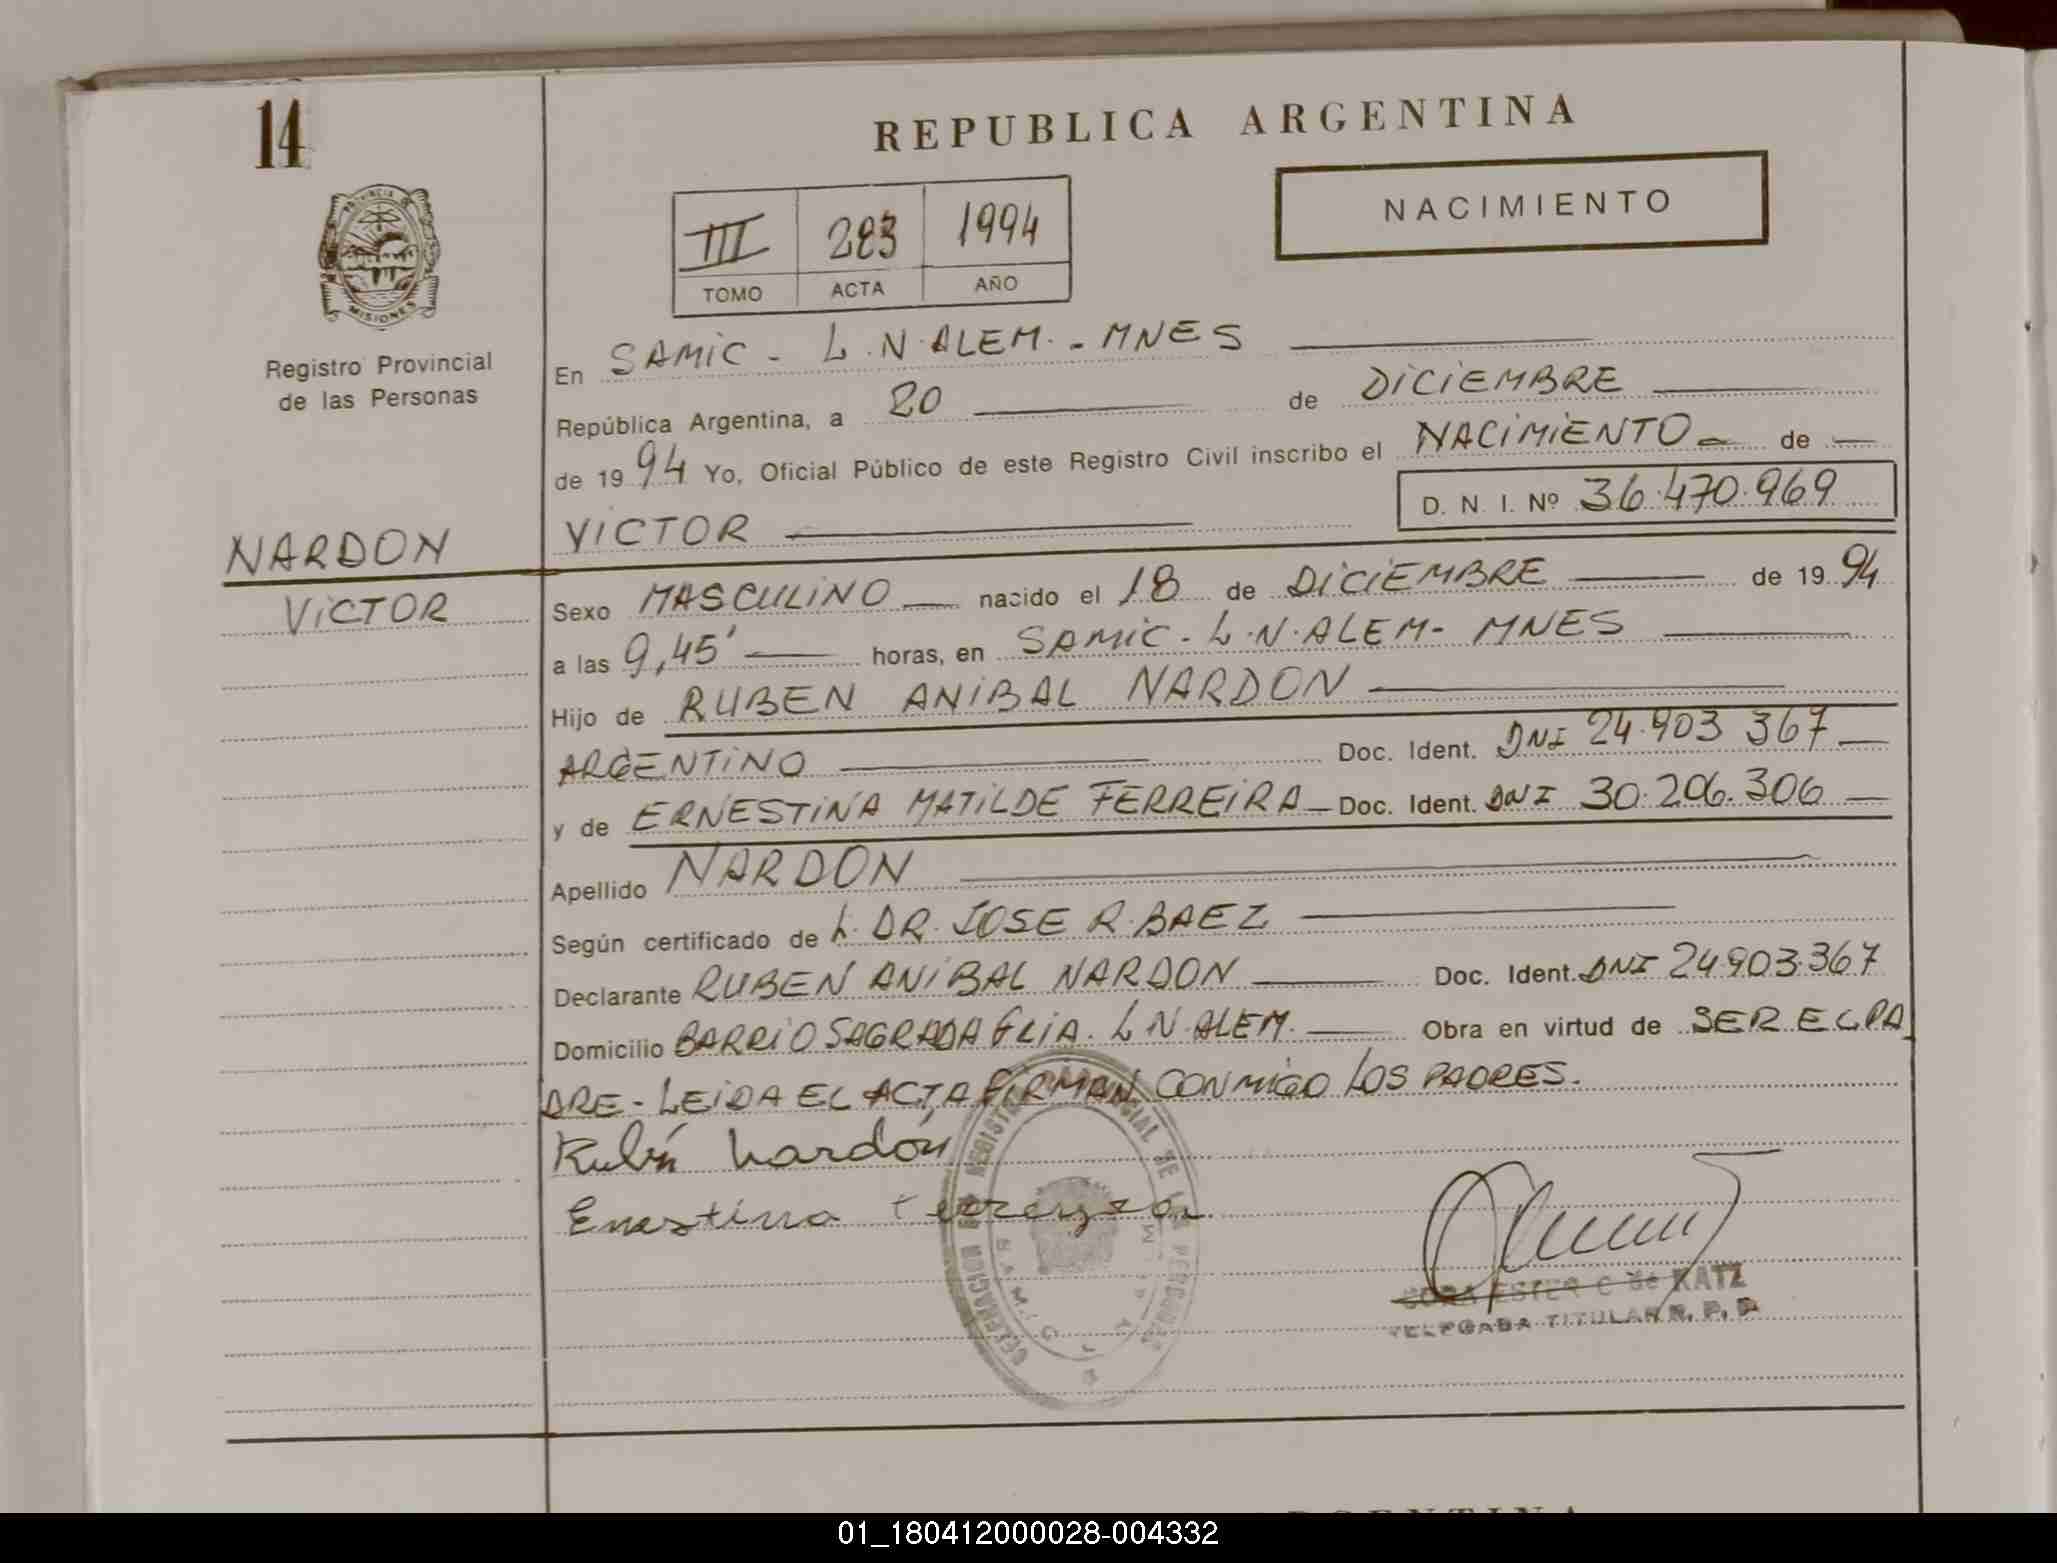 14
REPUBLICA ARGENTINA
NACIMIENTO
III 283 1994
TOMO ACTA AÑO
PROVINCIA DE
MISIONES
Registro Provincial
de las Personas
En SAMIC - L.N.ALEM.-MNES
República Argentina, a 20 de DICIEMBRE
de 1994 Yo, Oficial Público de este Registro Civil inscribo el NACIMIENTO de
D. N. I. Nº 36.470.969
NARDON
VICTOR
VICTOR
Sexo MASCULINO nacido el 18 de DICIEMBRE de 1994
a las 9,45' horas, en SAMIC - L.N.ALEM- MNES
Hijo de RUBEN ANIBAL NARDON
ARGENTINO Doc. Ident. DNI 24.903 367
y de ERNESTINA MATILDE FERREIRA Doc. Ident. DNI 30.206.306
Apellido NARDON
Según certificado de L. DR. JOSE R. BAEZ
Declarante RUBEN ANIBAL NARDON Doc. Ident. DNI 24.903.367
Domicilio BARRIO SAGRADA FLIA. L N. ALEM. Obra en virtud de SER EL PA
DRE - LEIDA EL ACTA FIRMAN CONMIGO LOS PADRES.
Rubén Nardón
Ernestina
DELEGACION DEL REGISTRO PROVINCIAL DE LAS PERSONAS
ESTER C de KATZ
TITULAR R. P. P.
01_180412000028-004332